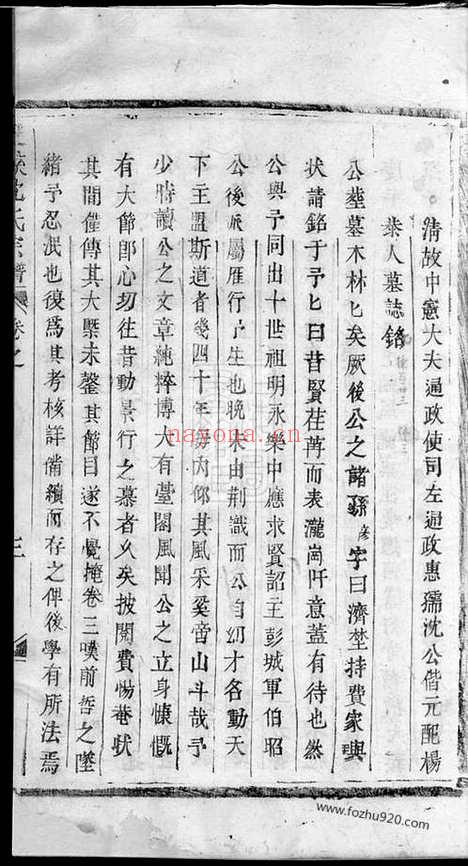 清故中憲大夫通政使司左通政惠孺沈公偕元配楊
恭人墓誌銘
公葬墓木林匕矣厥後公之諸孫彥字曰濟埜持費家璵
狀請銘于予匕曰昔賢荏苒而表瀧崗阡意蓋有待也然
公與予同出十世祖明永樂中應求賢詔主彭城軍伯昭
公後派屬雁行予生也晚未由荆識而公自幼才名動天
下主盟斯道者幾四十年海內仰其風采奚啻山斗哉予
少時讀公之文章純粹博大有臺閣風聞公之立身慷慨
有大節卽心切往昔動景行之慕者久矣披閱費惕菴狀
其間僅傳其大槩未罄其節目遂不覺掩卷三嘆前哲之墜
緒予忍泯也復爲其考核詳備續而存之俾後學有所法焉
沈氏宗譜 卷之 三
nayona.cn
www.fozhu920.com